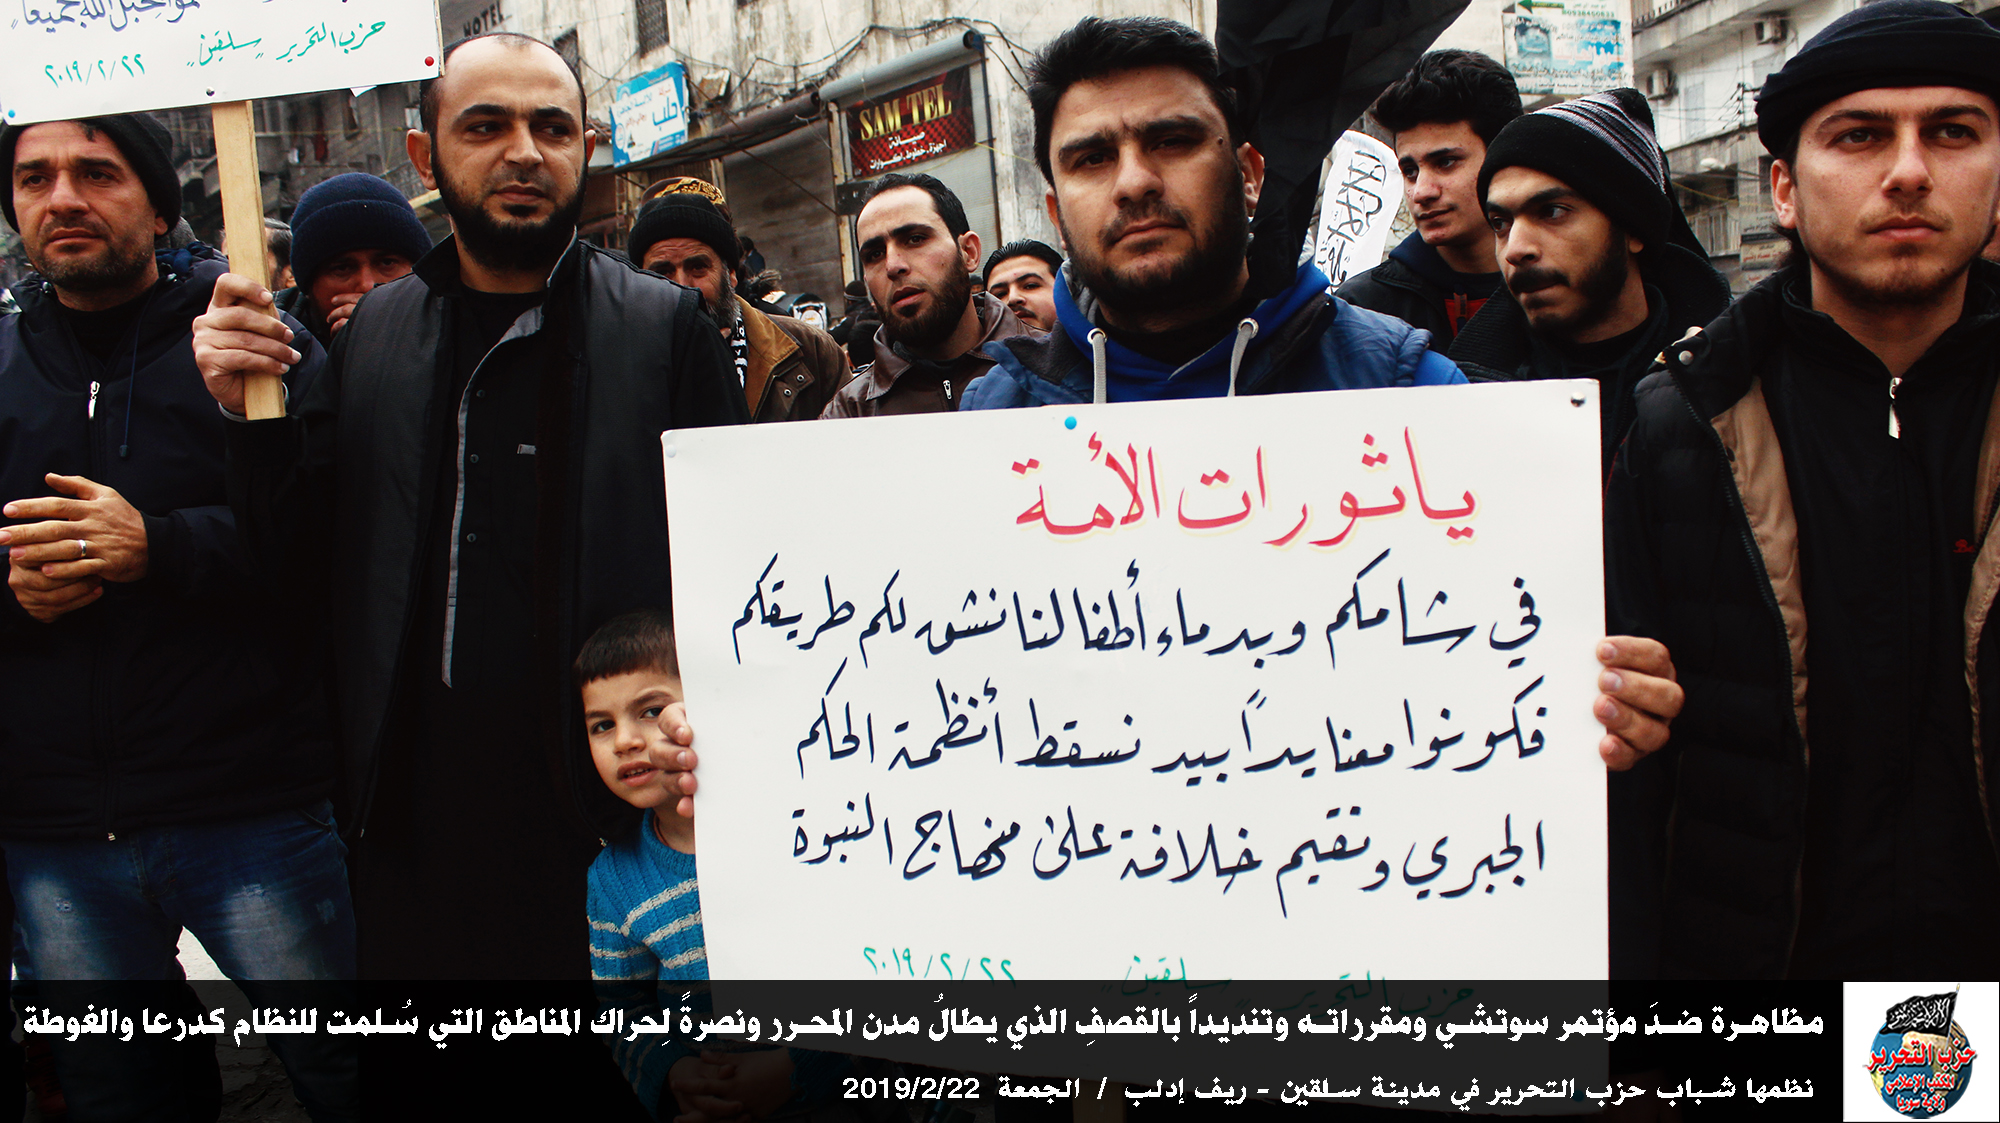 حزب التحرير "سلقين"
٢٠١٩/٢/٢٢
HOTEL
حلب
SAM TEL
صيانة
اجهزة. خطوط. اكسسوارات
ياثورات الأمة
في شامكم وبدماء أطفالنا نشق لكم طريقكم
فكونوا معنا يداً بيد نسقط أنظمة الحكم
الجبري ونقيم خلافة على منهاج النبوة
حزب التحرير "سلقين" ٢٠١٩/٢/٢٢
مظاهرة ضدَ مؤتمر سوتشي ومقرراته وتنديداً بالقصفِ الذي يطالُ مدن المحرر ونصرةً لِحراك المناطق التي سُلمت للنظام كدرعا والغوطة
نظمها شباب حزب التحرير في مدينة سلقين - ريف إدلب / الجمعة 2019/2/22
حزب التحرير
المكتب الإعلامي
ولاية سوريا